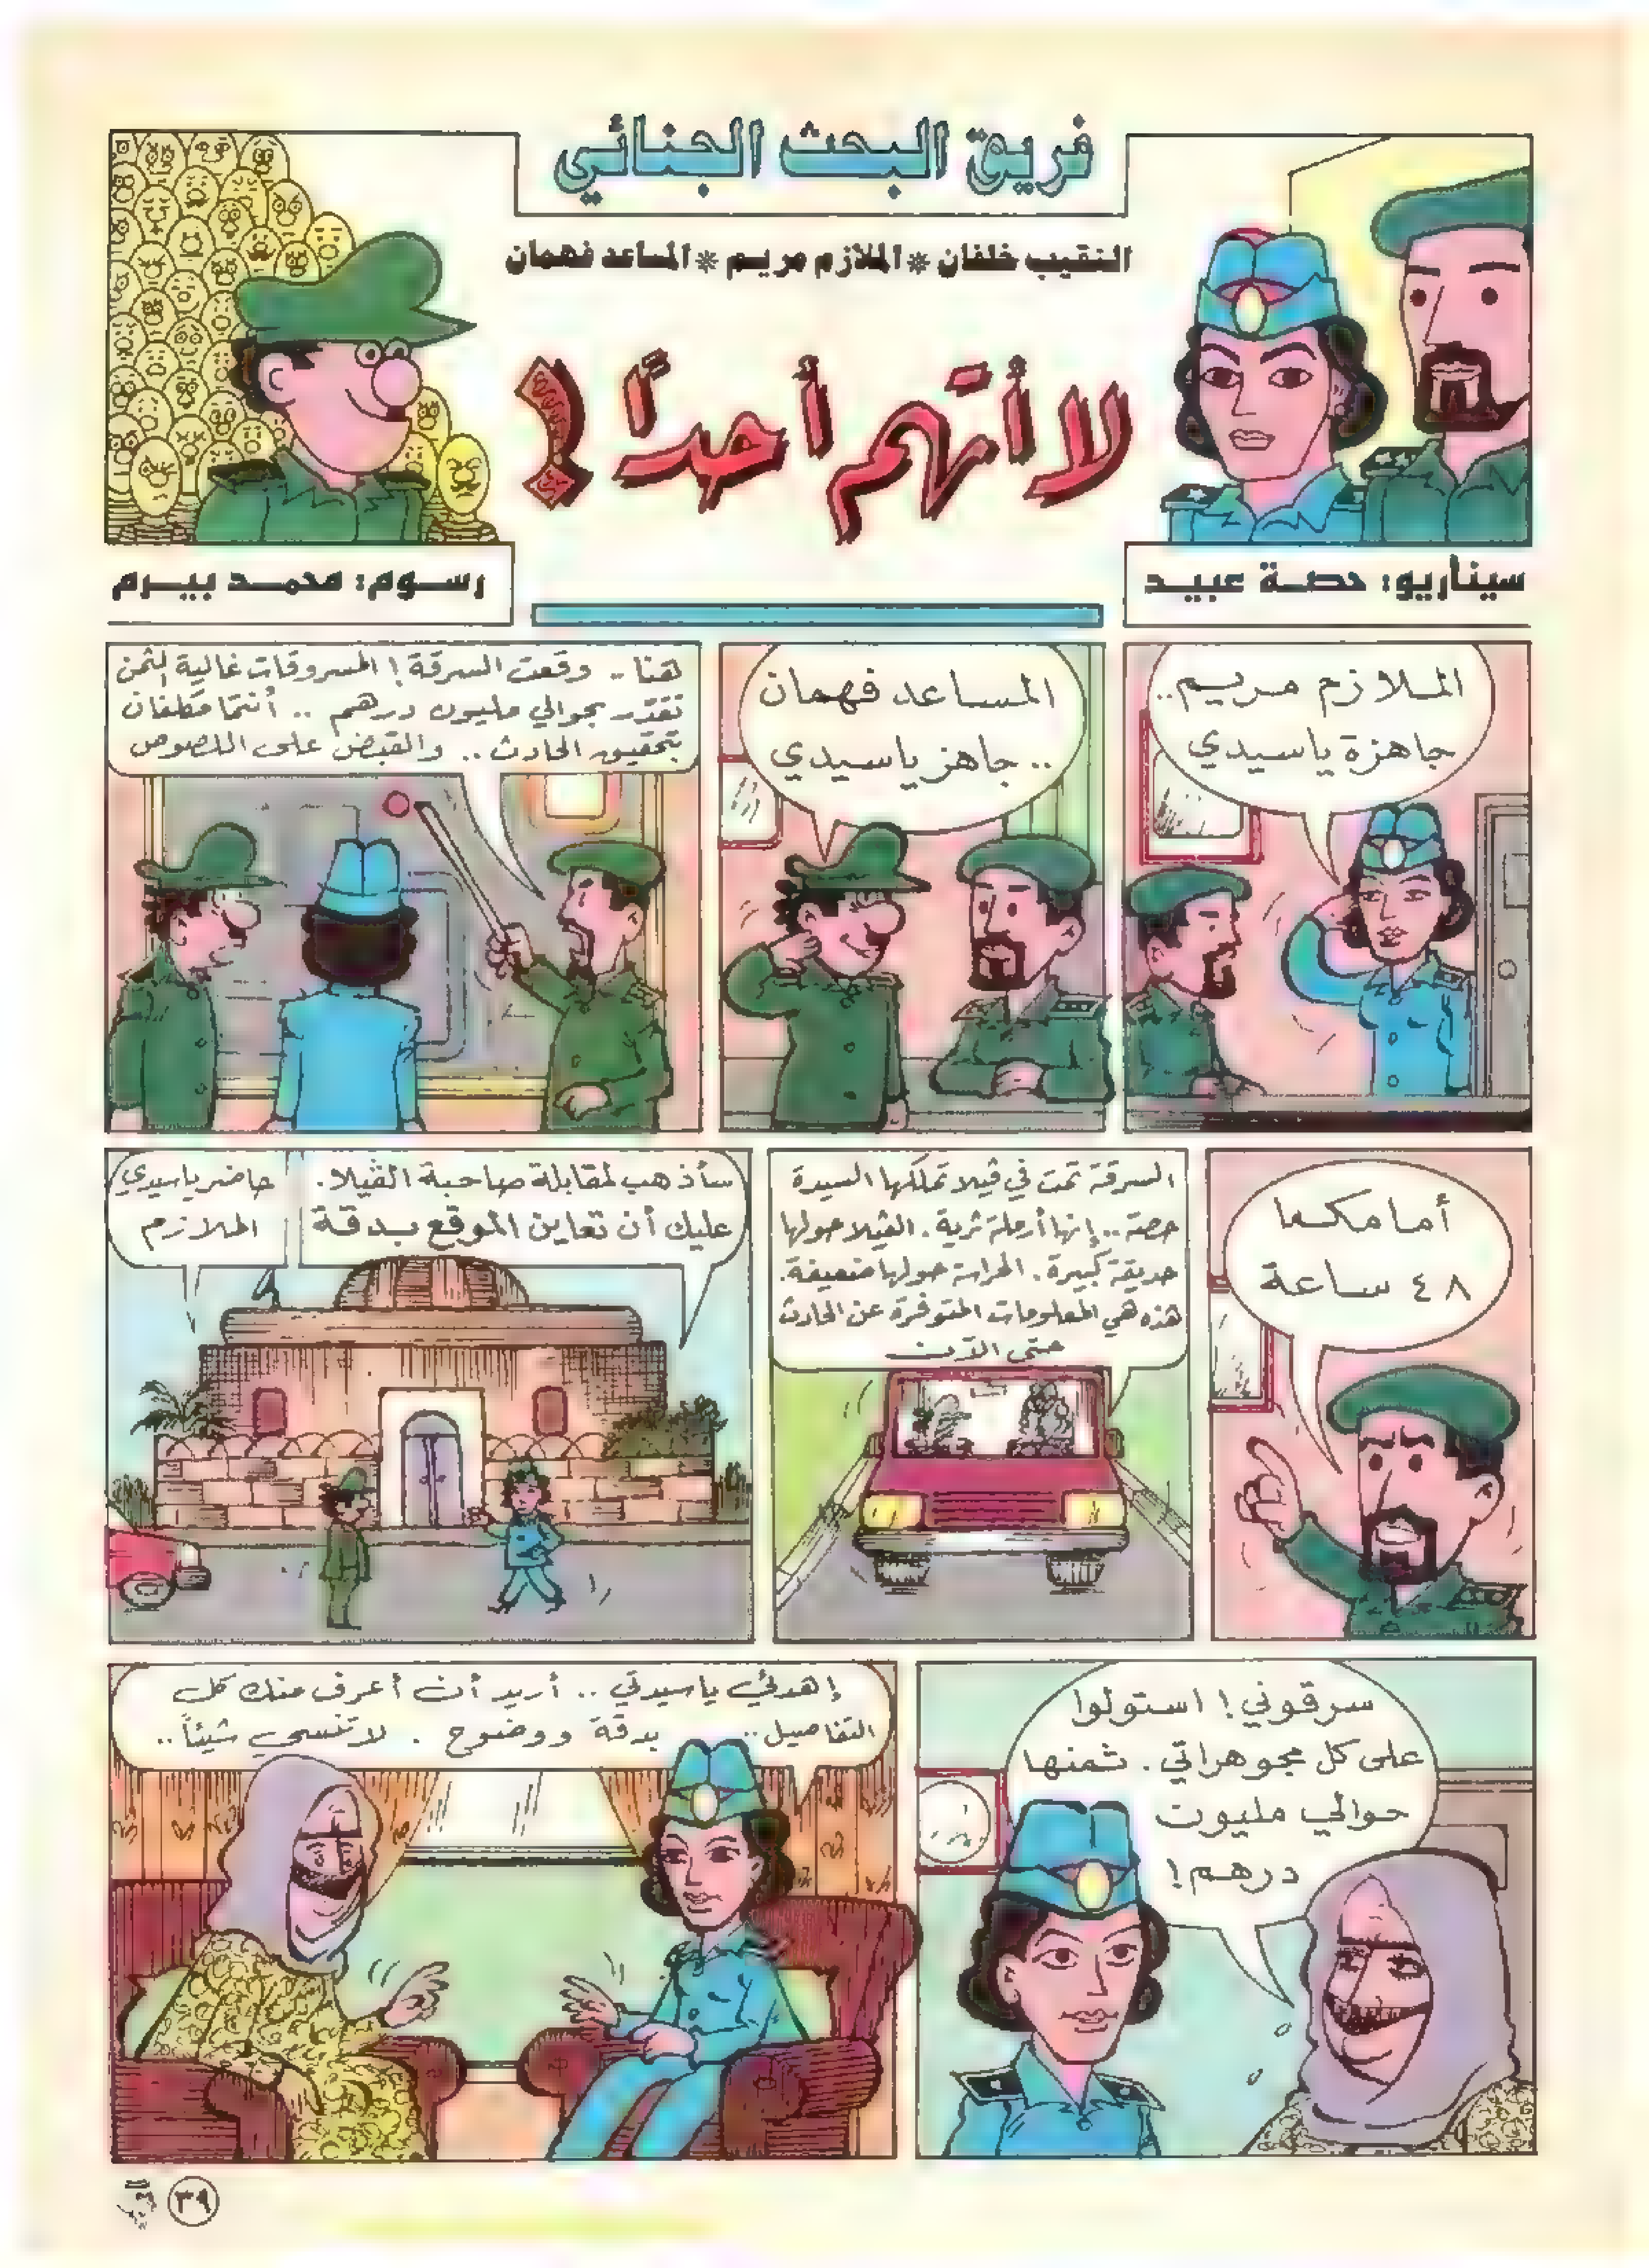 فريق البحث الجنائي
النقيب خلفان * الملازم مريم * المساعد فهمان
لا أتهم أحدًا!
سيناريو: حصة عبيد
رسوم: محمد بيرم
الملازم مريم..
جاهزة ياسيدي
المساعد فهمان
.. جاهز ياسيدي
هنا.. وقعت السرقة! المسروقات غالية الثمن
تقدّر بحوالي مليون درهم .. أنتما مكلفان
بتحقيق الحادث .. والقبض على اللصوص
أمامكما
٤٨ ساعة
السرقة تمت في ڤيلا تملكها السيدة
حصة .. إنها أرملة ثرية. الڤيلا حولها
حديقة كبيرة. الحراسة حولها ضعيفة.
هذه هي المعلومات المتوفرة عن الحادث
حتى الآن
سأذهب لمقابلة صاحبة الڤيلا.
عليك أن تعاين الموقع بدقة
حاضر ياسيدي
الملازم
سرقوني! استولوا
على كل مجوهراتي. ثمنها
حوالي مليون
درهم!
إهدئي ياسيدتي .. أريد أن أعرف منك كل
التفاصيل.. بدقة ووضوح . لا تنسي شيئاً..
٣٩